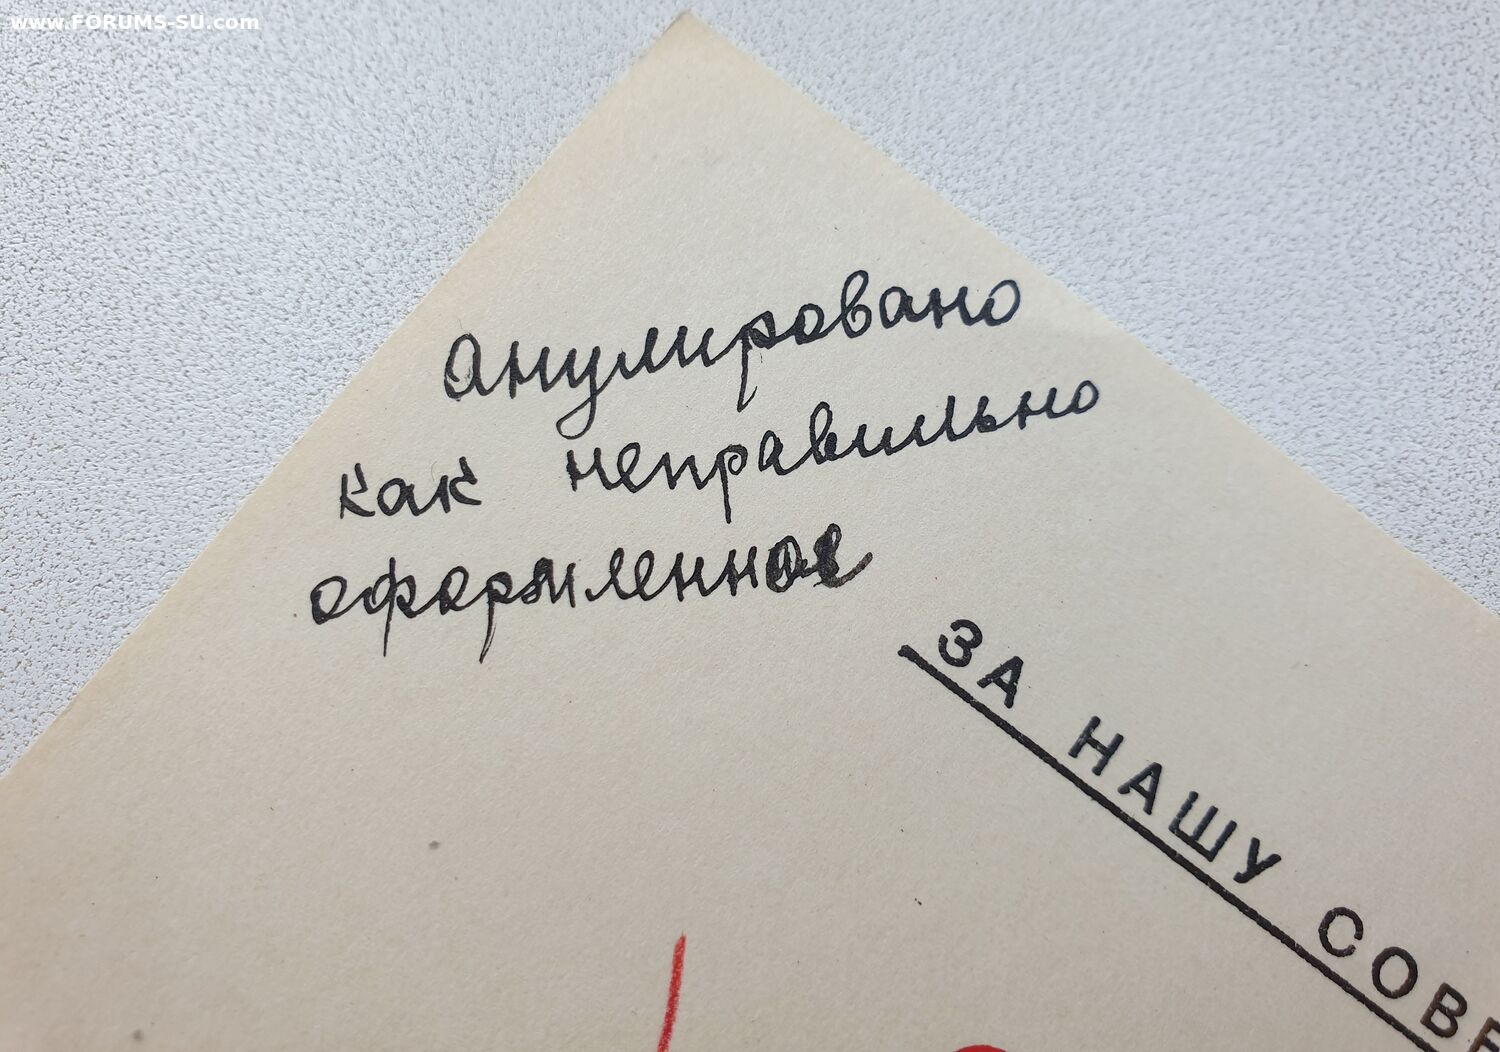 www.FORUMS-SU.com
анулировано
как неправильно
оформленное
ЗА НАШУ СОВЕ